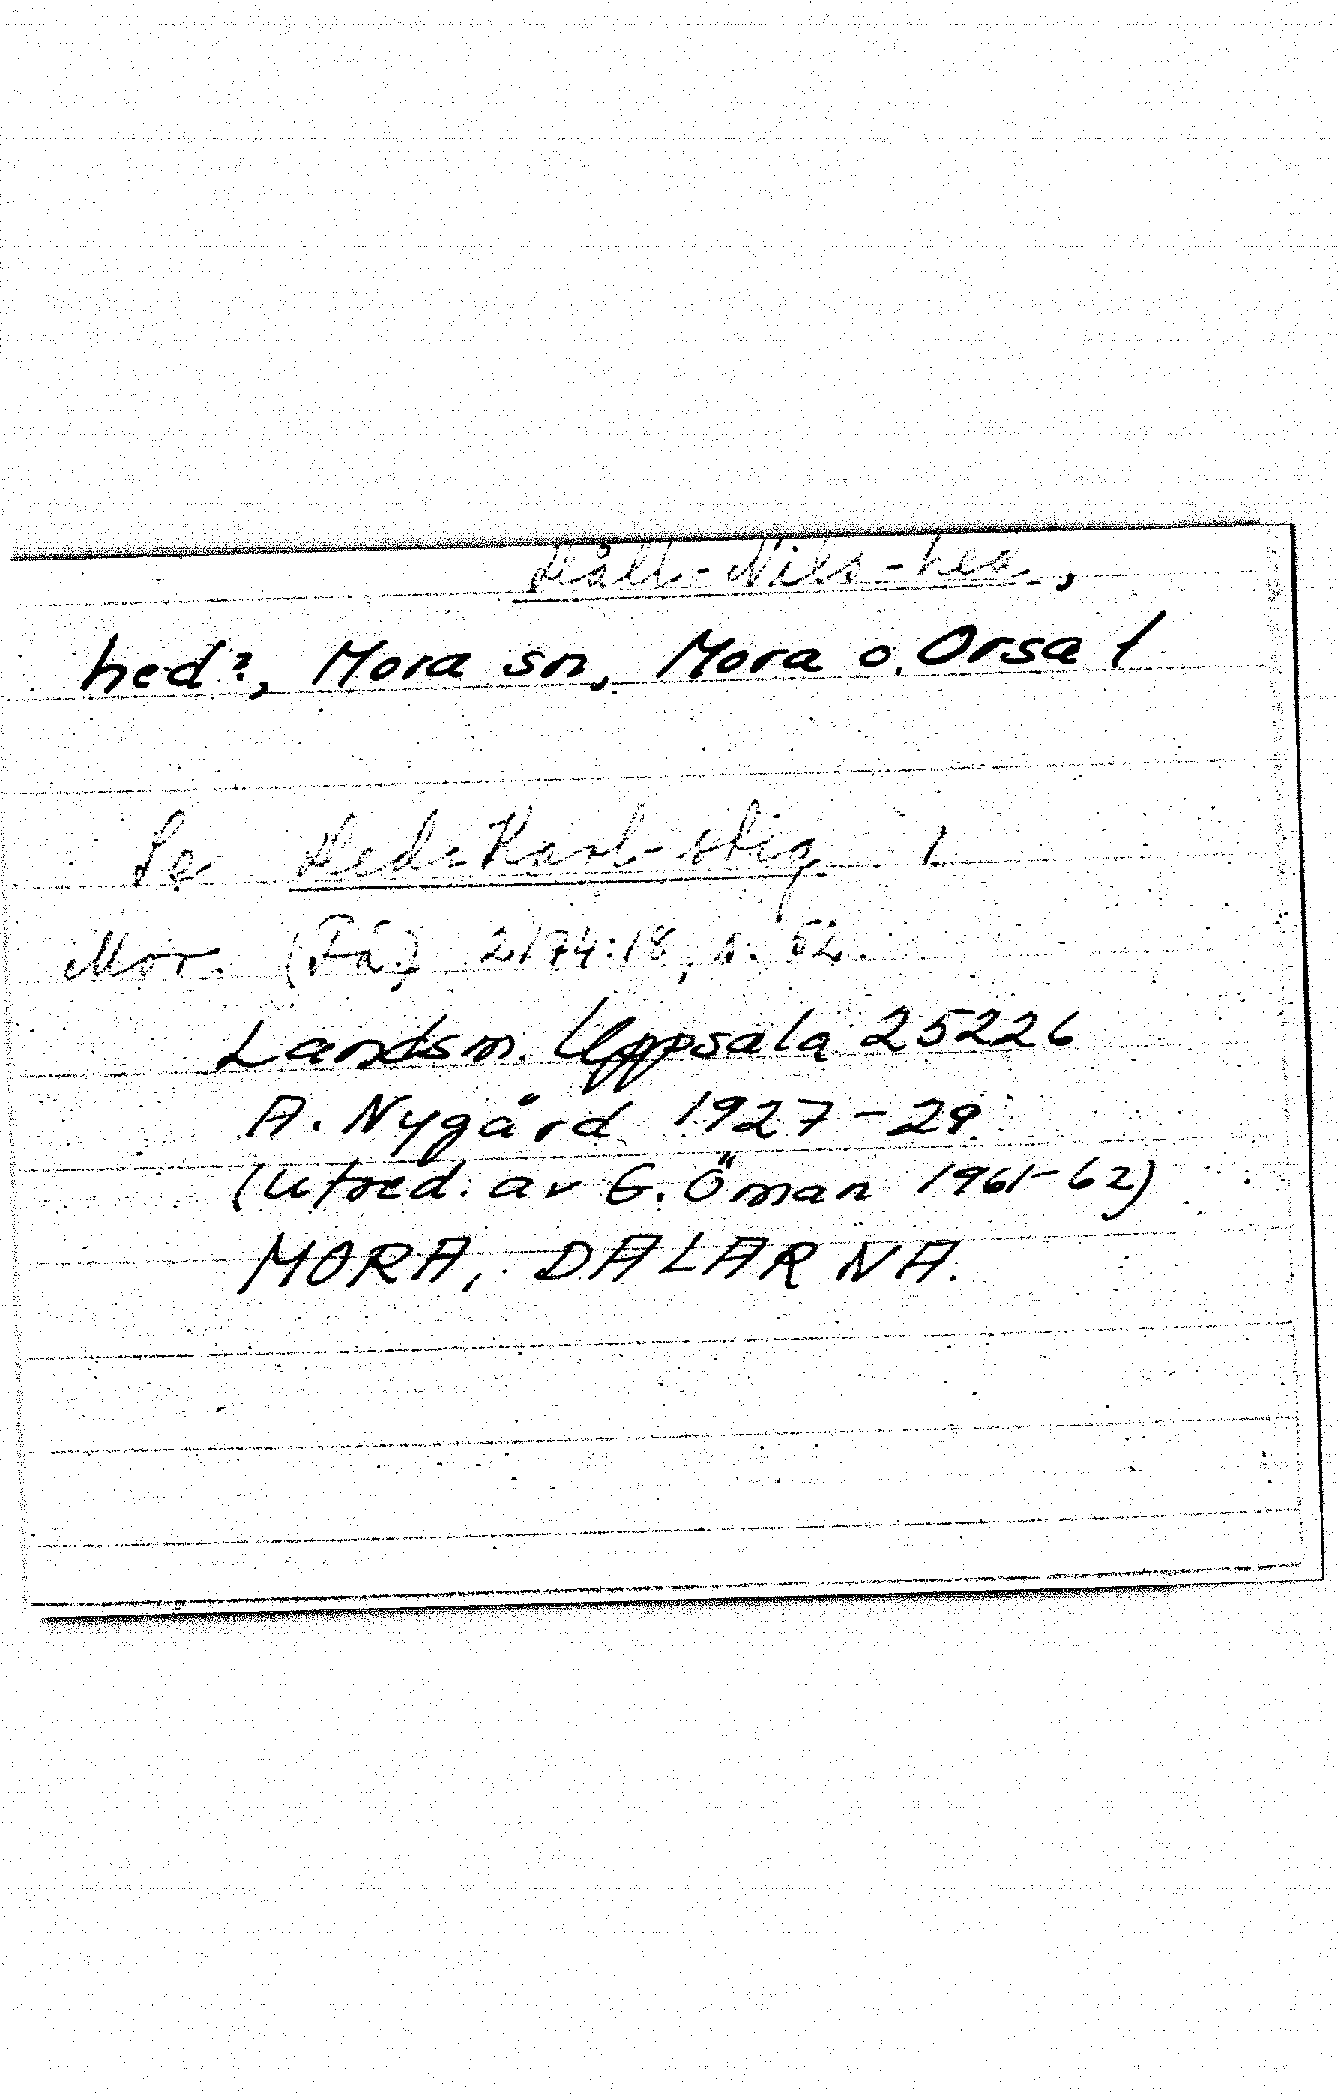 Håll-Nils-hed,
hed?, Mora sn, Mora o. Orsa t
Se Hed-Karl-stig 1
Mor. (Få) 2174:18, s. 52.
Landsm. Uppsala 25226
A. Nygård 1927-29
(Utred. av G. Öman 1961-62)
MORA, DALARNA.